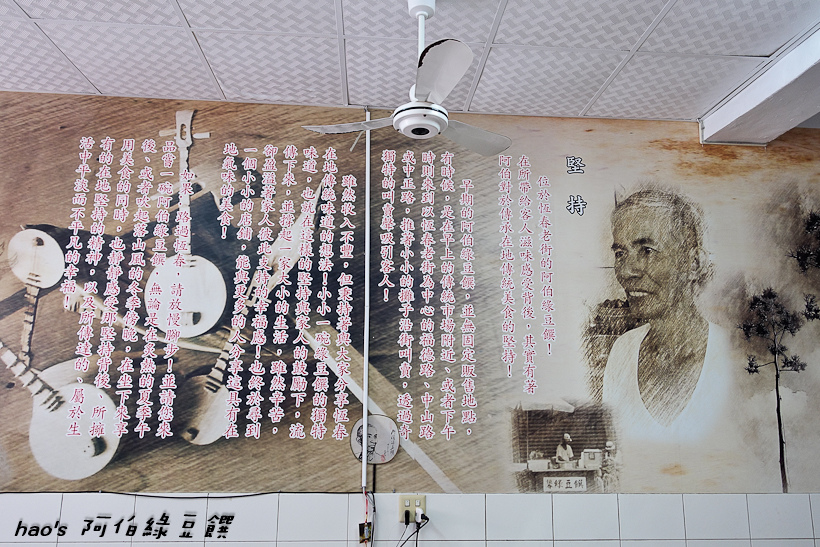 堅持
位於恆春老街的阿伯綠豆饌!
在所帶給客人滋味感受背後,其實有著
阿伯對於傳承在地傳統美食的堅持!
早期的阿伯綠豆饌,並無固定販售地點,
有時候,是在早上的傳統市場附近、或者下午
時則來到以恆春老街為中心的福德路、中山路
或中正路,推著小小的攤子沿街叫賣,透過奇
獨特的叫賣聲吸引客人!
雖然收入不豐,但秉持著與大家分享恆春
在地傳統味道的想法!小小一碗綠豆饌的獨特
味道,也就在這樣的堅持與家人的鼓勵下,流
傳下來,並撐起一家大小的生活,雖然辛苦,
卻盈溢著家人彼此支持的幸福感!也終於尋到
一個小小的店鋪,能與更多的人分享這具有在
地氣味的美食!
如果,路過恆春,請放慢腳步!並請您來
品嘗一碗阿伯綠豆饌,無論是在炎熱的夏季午
後、或者吹起落山風的冬季傍晚,在坐下來享
用美食的同時,也靜靜感受那堅持背後,所擁
有的在地堅持的精神,以及所傳達的、屬於生
活中平淡而不平凡的幸福!
饌豆綠
hao's 阿伯綠豆饌